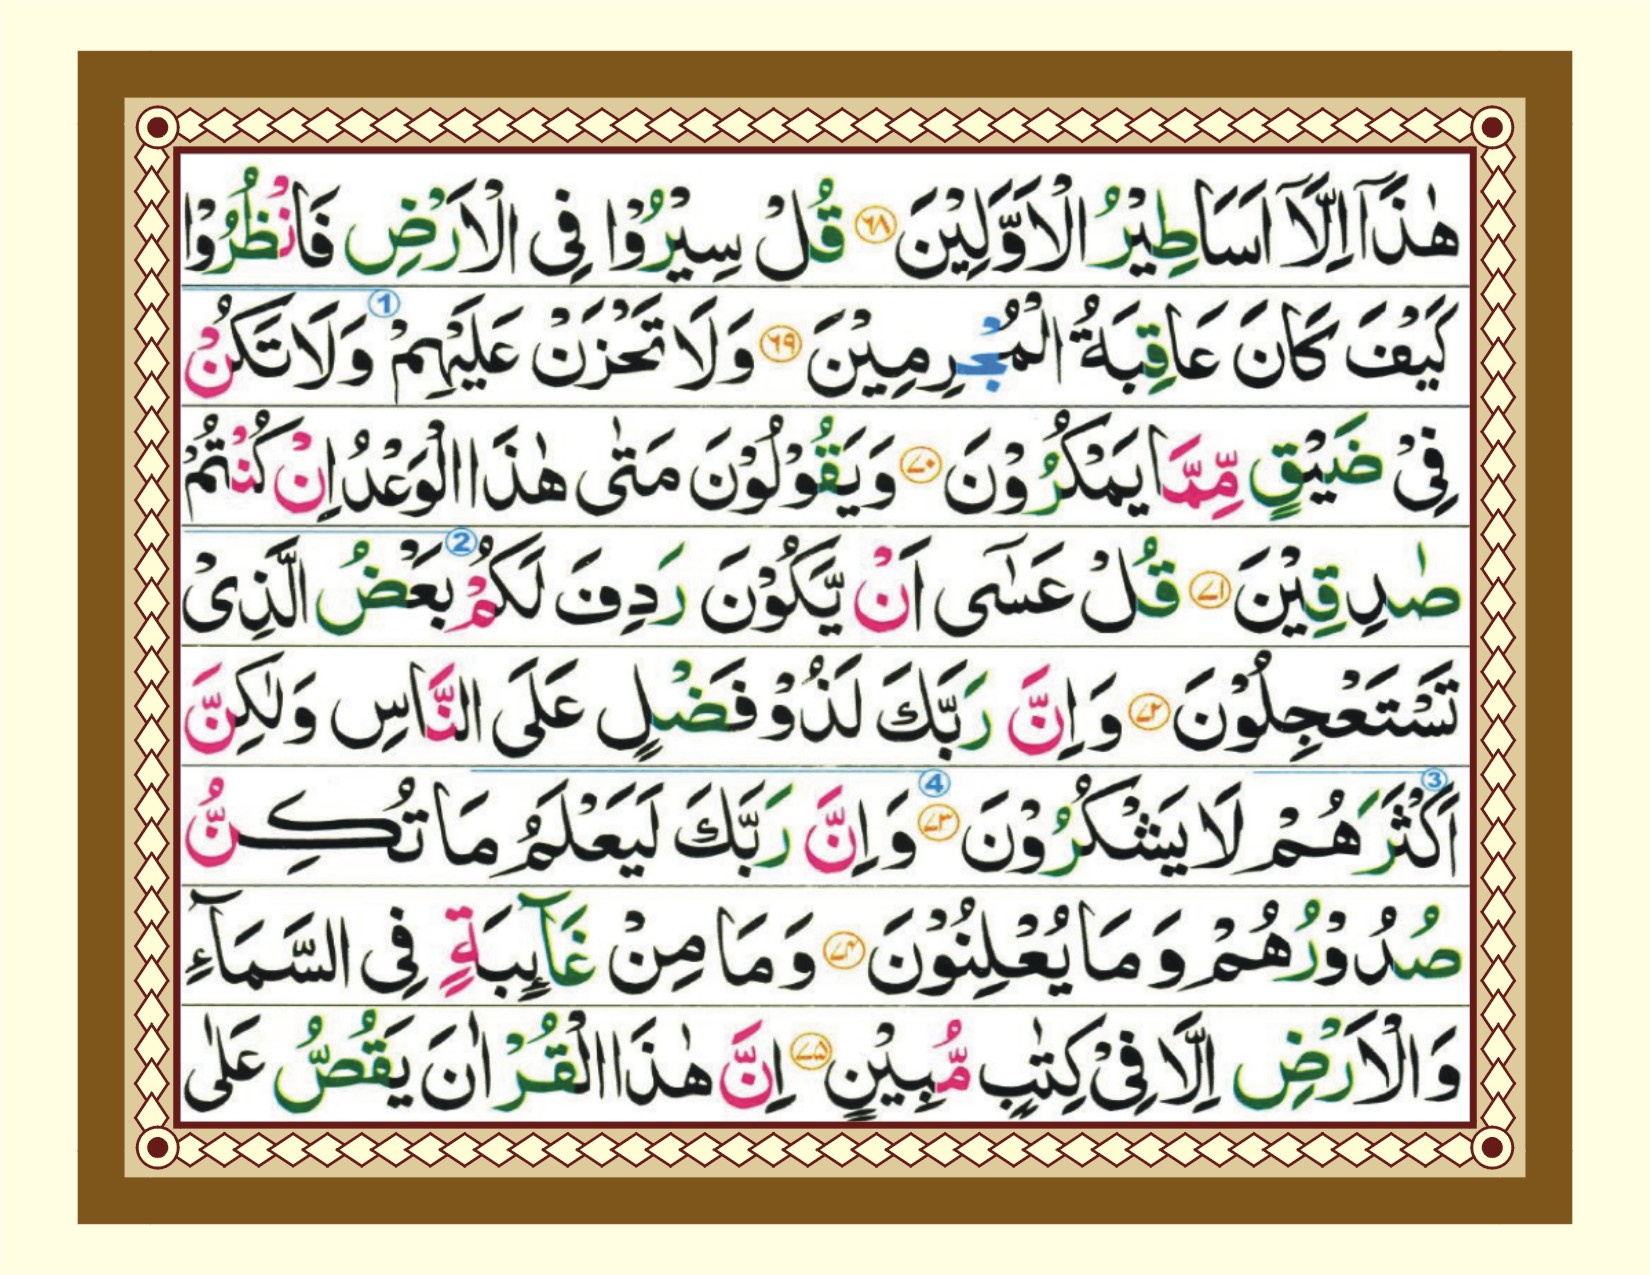 هٰذَاۤ اِلَّاۤ اَسَاطِيْرُ الْاَوَّلِيْنَ ﴿۶۸﴾ قُلْ سِيْرُوْا فِى الْاَرْضِ فَانْظُرُوْا
كَيْفَ كَانَ عَاقِبَةُ الْمُجْرِمِيْنَ ﴿۶۹﴾ وَلَا تَحْزَنْ عَلَيْهِمْ 1 وَلَا تَكُنْ
فِىْ ضَيْقٍ مِّمَّا يَمْكُرُوْنَ ﴿۷۰﴾ وَيَقُوْلُوْنَ مَتٰى هٰذَا الْوَعْدُ اِنْ كُنْتُمْ
صٰدِقِيْنَ ﴿۷۱﴾ قُلْ عَسٰٓى اَنْ يَّكُوْنَ رَدِفَ لَكُمْ 2 بَعْضُ الَّذِىْ
تَسْتَعْجِلُوْنَ ﴿۷۲﴾ وَاِنَّ رَبَّكَ لَذُوْ فَضْلٍ عَلَى النَّاسِ وَلٰكِنَّ
3 اَكْثَرَهُمْ لَا يَشْكُرُوْنَ ﴿۷۳﴾ 4 وَاِنَّ رَبَّكَ لَيَعْلَمُ مَا تُكِنُّ
صُدُوْرُهُمْ وَمَا يُعْلِنُوْنَ ﴿۷۴﴾ وَمَا مِنْ غَآئِبَةٍ فِى السَّمَآءِ
وَالْاَرْضِ اِلَّا فِىْ كِتٰبٍ مُّبِيْنٍ ﴿۷۵﴾ اِنَّ هٰذَا الْقُرْاٰنَ يَقُصُّ عَلٰى